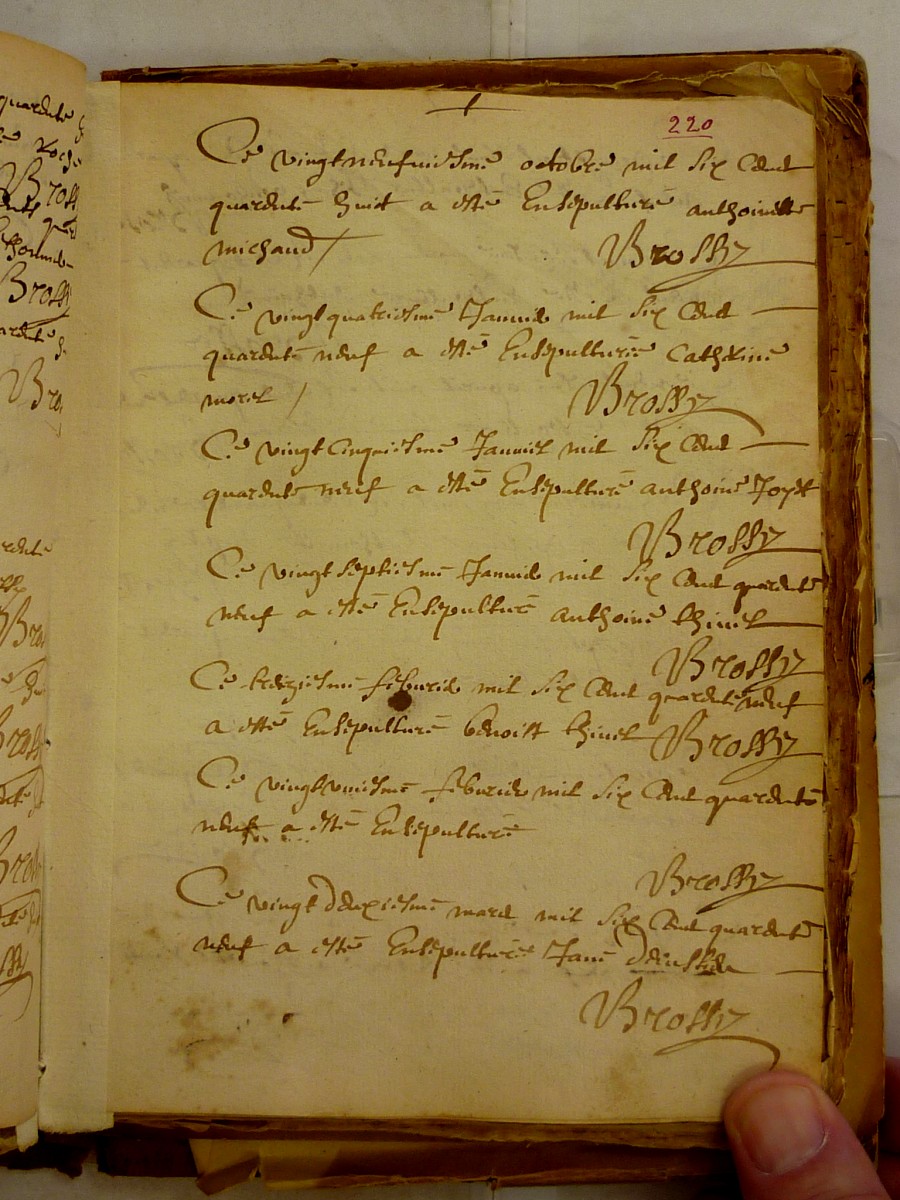 220
Ce vingtneufuiesme octobre mil six cent
quarente huit a este ensepulturé anthoinette
michaud / Brossy
Ce vingt quatriesme Januie mil six cent
quarente neuf a esté ensepulturée Catherine
morel / Brossy
Ce vingt cinquiesme Januier mil six cent
quarente neuf a esté ensepulturé anthoine
Brossy
Ce vingt septiesme Januie mil six cent quarente
neuf a esté ensepulturé anthoine thinet
Brossy
Ce treziesme feburie mil six cent quarente neuf
a esté ensepulturé benoist thinet Brossy
Ce vingt vniesme feburie mil six cent quarente
neuf a esté ensepulturé
Brossy
Ce vingt deuxiesme mars mil six cent quarente
neuf a esté ensepulturée
Brossy